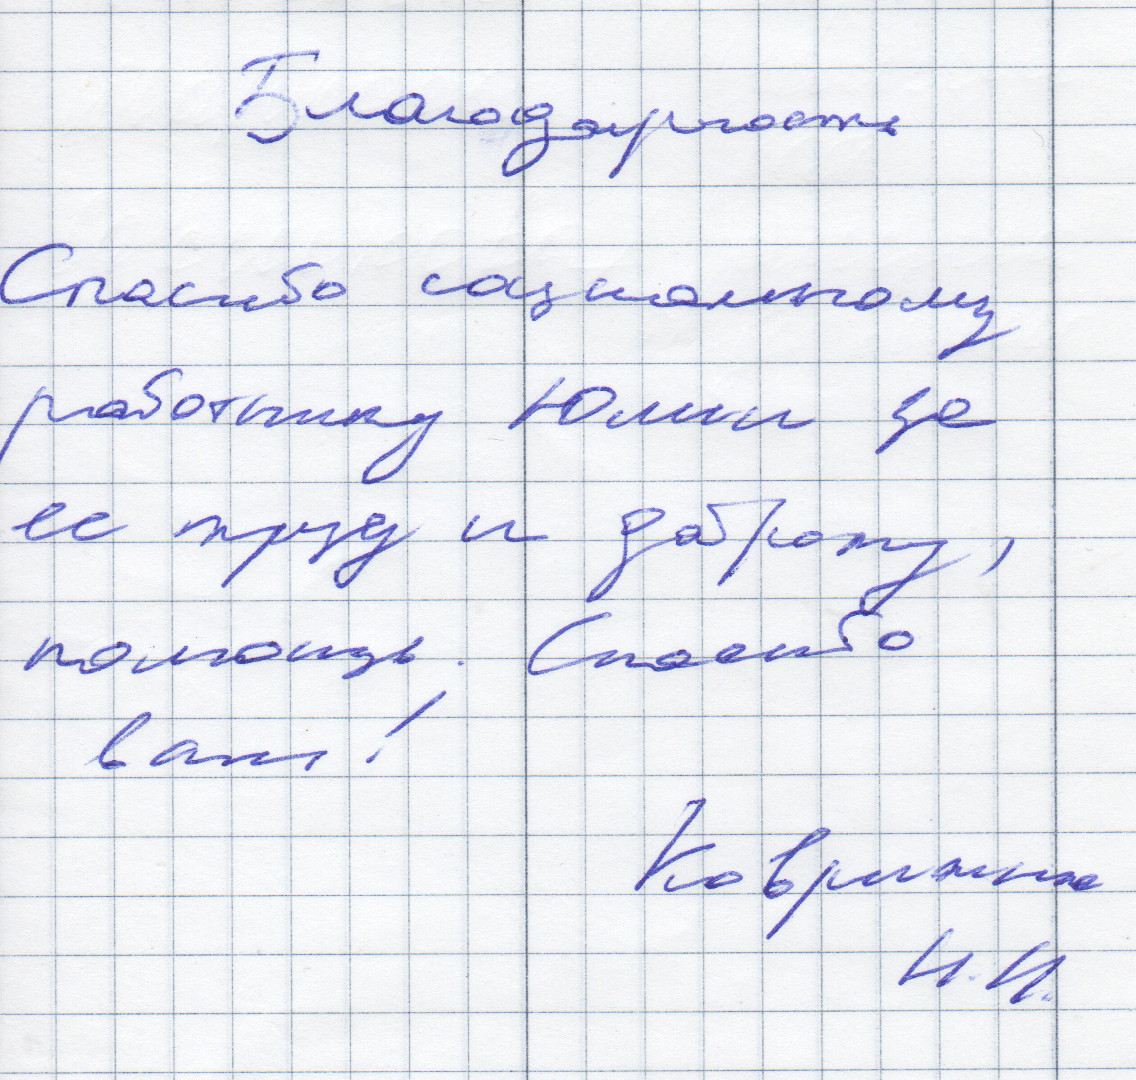 Благодарность
Спасибо социальному
работнику Юлии за
ее труд и доброту,
помощь. Спасибо
вам!
И.И.